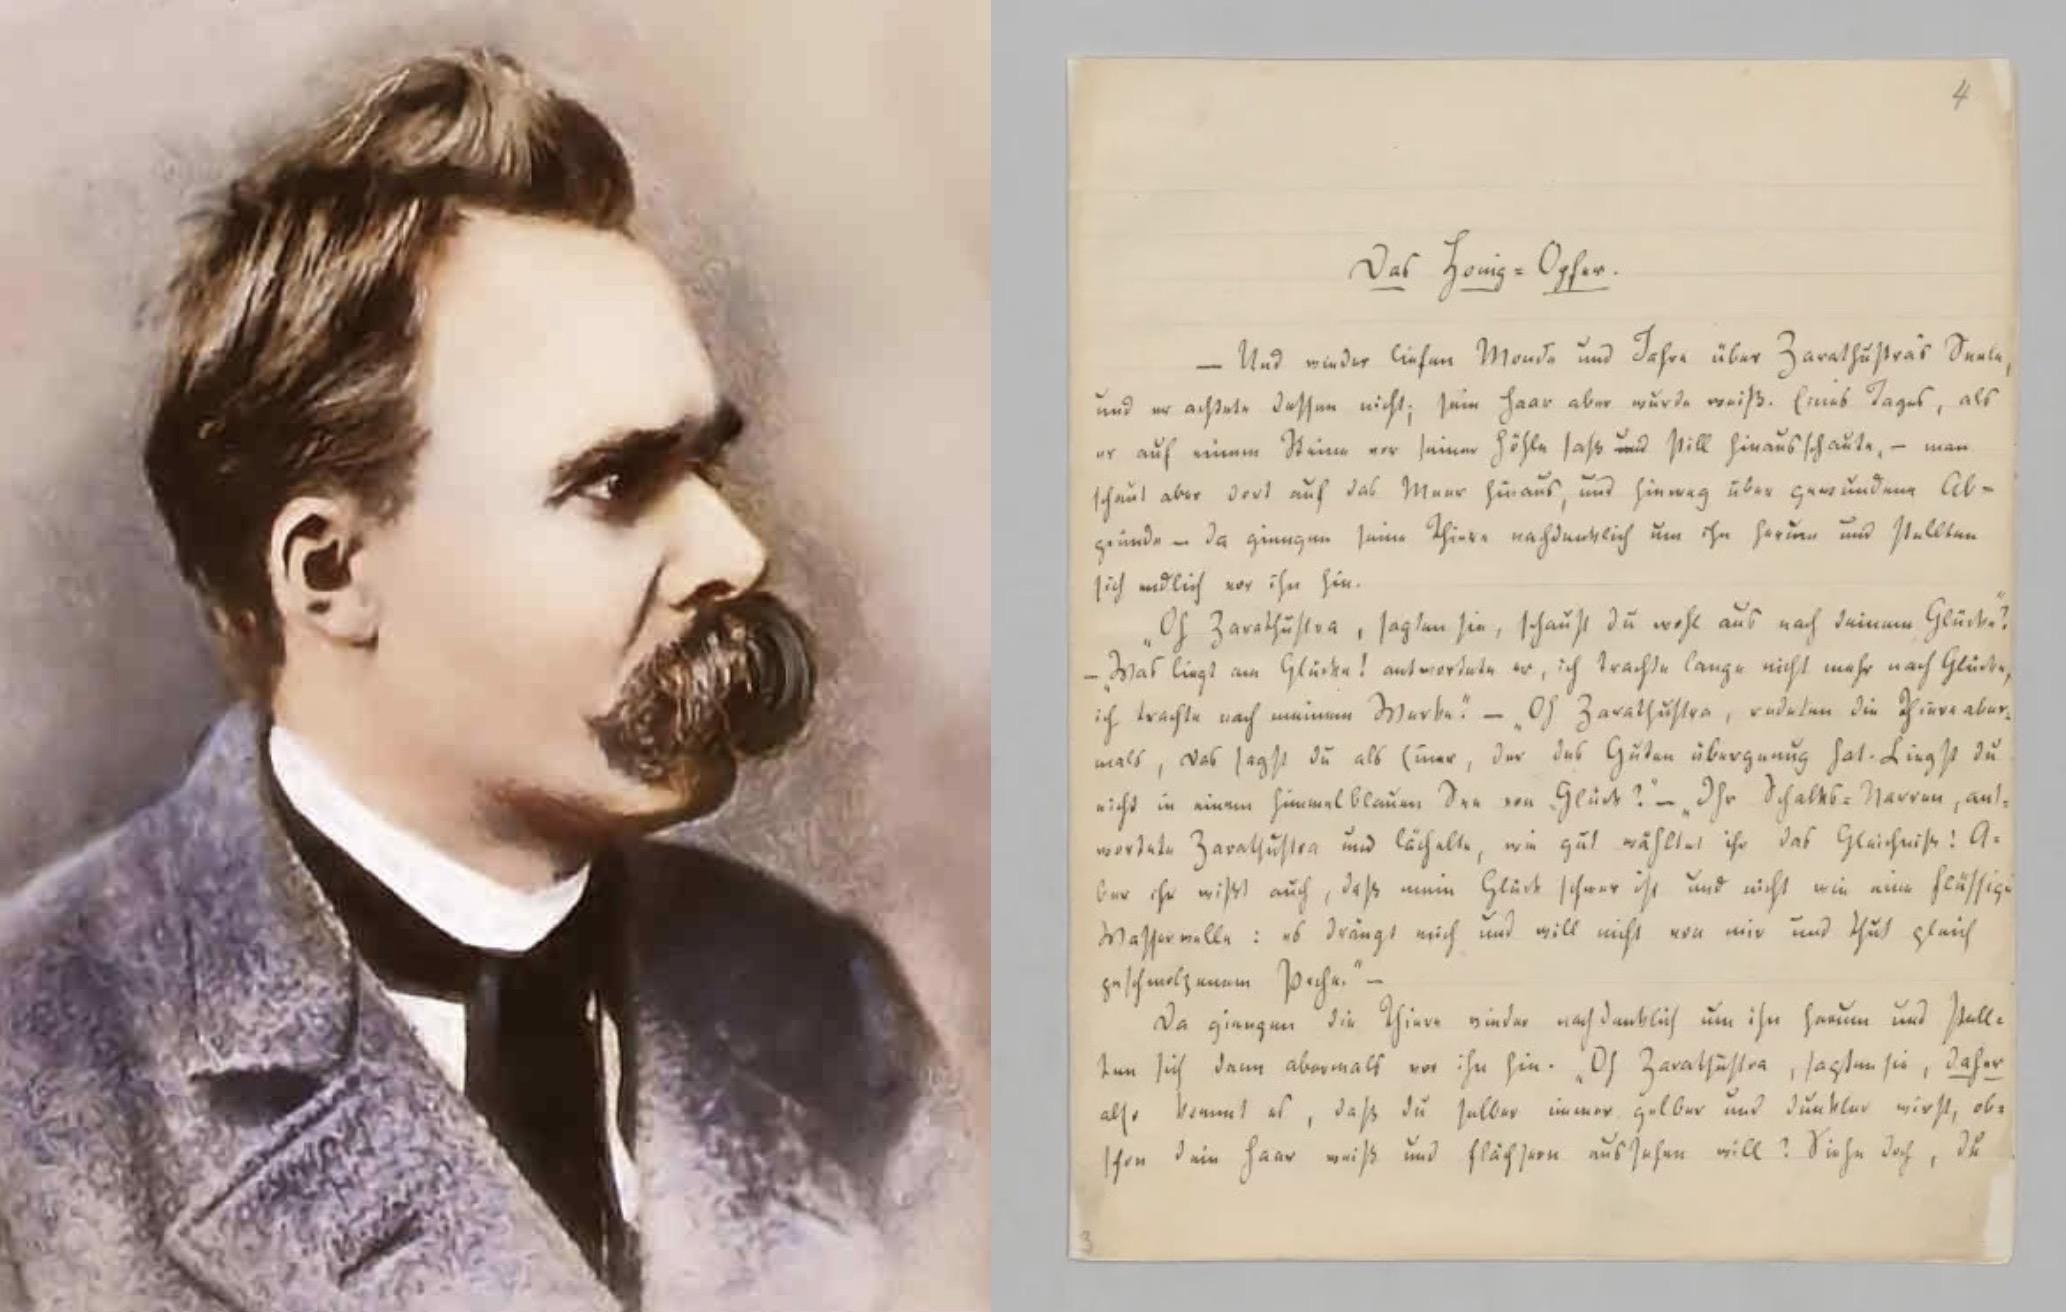 4
Das Honig-Opfer.
— Und wieder liefen Monde und Jahre über Zarathustra's Seele,
und er achtete dessen nicht; sein Haar aber wurde weiß. Eines Tages, als
er auf einem Steine vor seiner Höhle saß und still hinausschaute, – man
schaut aber dort auf das Meer hinaus, und hinweg über gewundene Ab-
gründe — da giengen seine Thiere nachdenklich um ihn herum und stellten
sich endlich vor ihn hin.
„Oh Zarathustra, sagten sie, schaust du wohl aus nach deinem Glücke?"
— „Was liegt am Glücke! antwortete er, ich trachte lange nicht mehr nach Glücke,
ich trachte nach meinem Werke." — „Oh Zarathustra, redeten die Thiere aber-
mals, das sagst du als Einer, der des Guten übergenug hat. Liegst du
nicht in einem himmelblauen See von Glück?" — „Ihr Schalks-Narren, ant-
wortete Zarathustra und lächelte, wie gut wähltet ihr das Gleichniß! A-
ber ihr wißt auch, daß mein Glück schwer ist und nicht wie eine flüssige
Wasserwelle: es drängt mich und will nicht von mir und thut gleich
geschmolzenem Peche." —
Da giengen die Thiere wieder nachdenklich um ihn herum und stell-
ten sich dann abermals vor ihn hin. „Oh Zarathustra, sagten sie, daher
also kommt es, daß du selber immer gelber und dunkler wirst, ob-
schon dein Haar weiß und flächsern aussehen will? Siehe doch, du
3